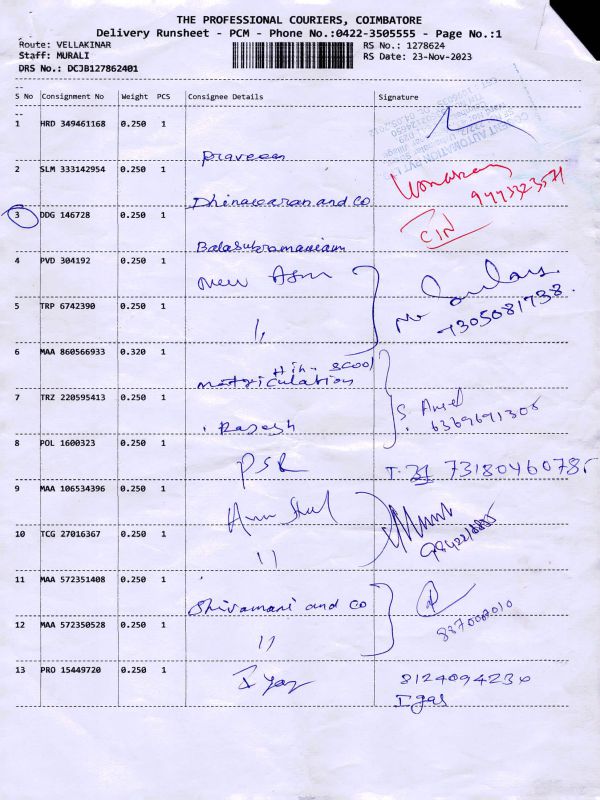 THE PROFESSIONAL COURIERS, COIMBATORE
Delivery Runsheet - PCM - Phone No.:0422-3505555 - Page No.:1
Route: VELLAKINAR
RS No.: 1278624
Staff: MURALI
RS Date: 23-Nov-2023
DRS No.: DCJB127862401
S No Consignment No Weight PCS Consignee Details Signature
1 HRD 349461168 0.250 1 Praveen
2 SLM 333142954 0.250 1 Dhinakaran and co
3 DDG 146728 0.250 1 Balasubramaniam CIN
4 PVD 304192 0.250 1 New
5 TRP 6742390 0.250 1 " 7305081738
6 MAA 860566933 0.320 1 Hih. scool
matriculation
7 TRZ 220595413 0.250 1 Rasesh S
8 POL 1600323 0.250 1 PSR 73180460785
9 MAA 106534396 0.250 1
10 TCG 27016367 0.250 1 "
11 MAA 572351408 0.250 1 Shivamani and co
12 MAA 572350528 0.250 1 "
13 PRO 15449720 0.250 1 8124094230